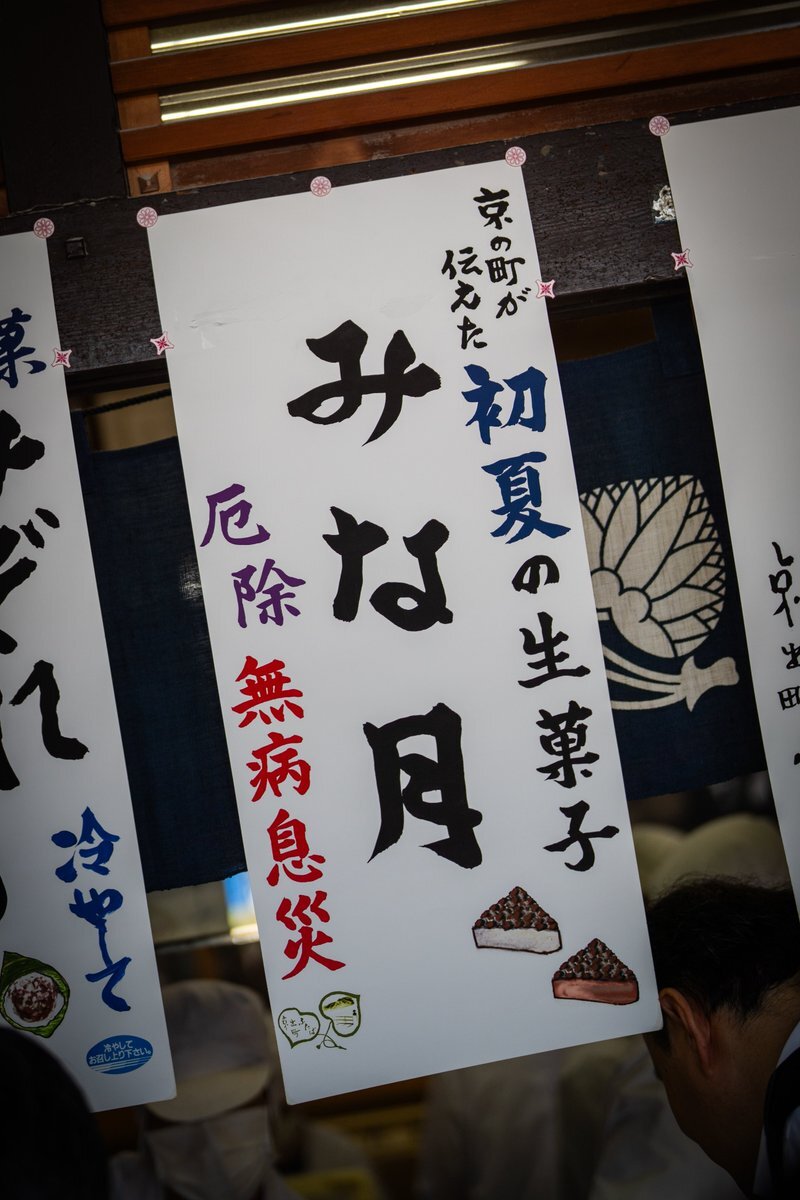 京出町
京の町が
伝えた
初夏の生菓子
みな月
厄除 無病息災
京
出町
ふたば
菓
冷やして
冷やして
お召し上り下さい。